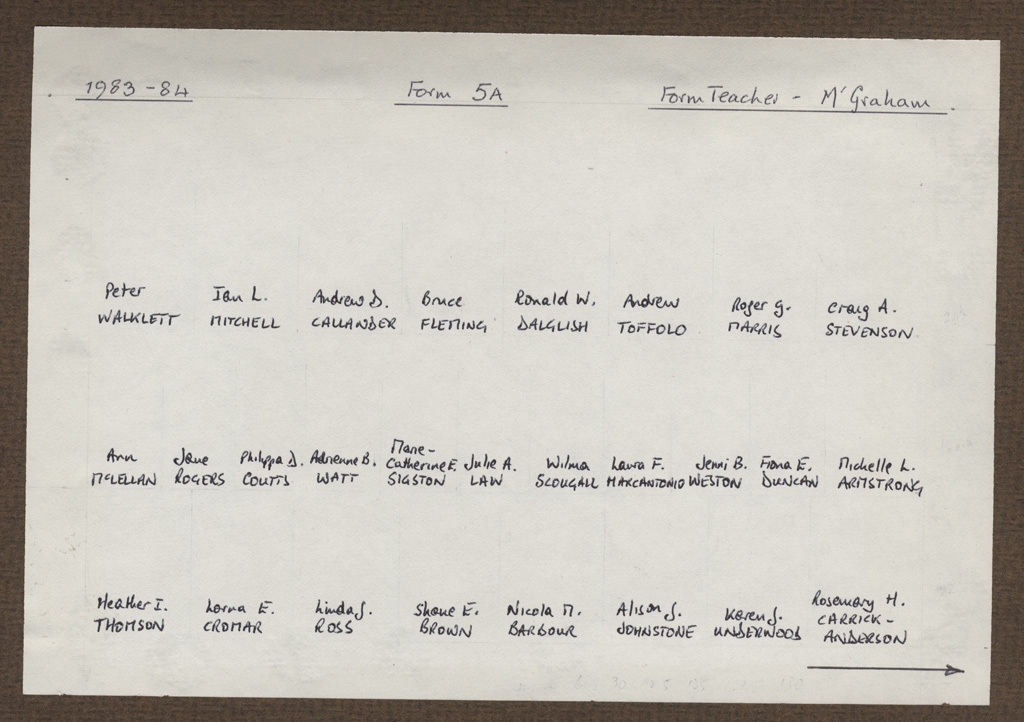 1983-84 Form 5A Form Teacher - Mr Graham.
Peter Ian L. Andrew D. Bruce Ronald W. Andrew Roger G. Craig A.
WALKLETT MITCHELL CALLANDER FLEMING DALGLISH TOFFOLO MARRIS STEVENSON
Marie-
Ann Jane Philippa D. Adrienne B. Catherine E. Julie A. Wilma Laura F. Jenni B. Fiona E. Michelle L.
McLELLAN ROGERS COUTTS WATT SIGSTON LAW SCOUGALL MARCANTONIO WESTON DUNCAN ARMSTRONG
Heather I. Lorna E. Linda J. Shone E. Nicola M. Alison J. Karen J. Rosemary H.
THOMSON CROMAR ROSS BROWN BARBOUR JOHNSTONE UNDERWOOD CARRICK-
ANDERSON